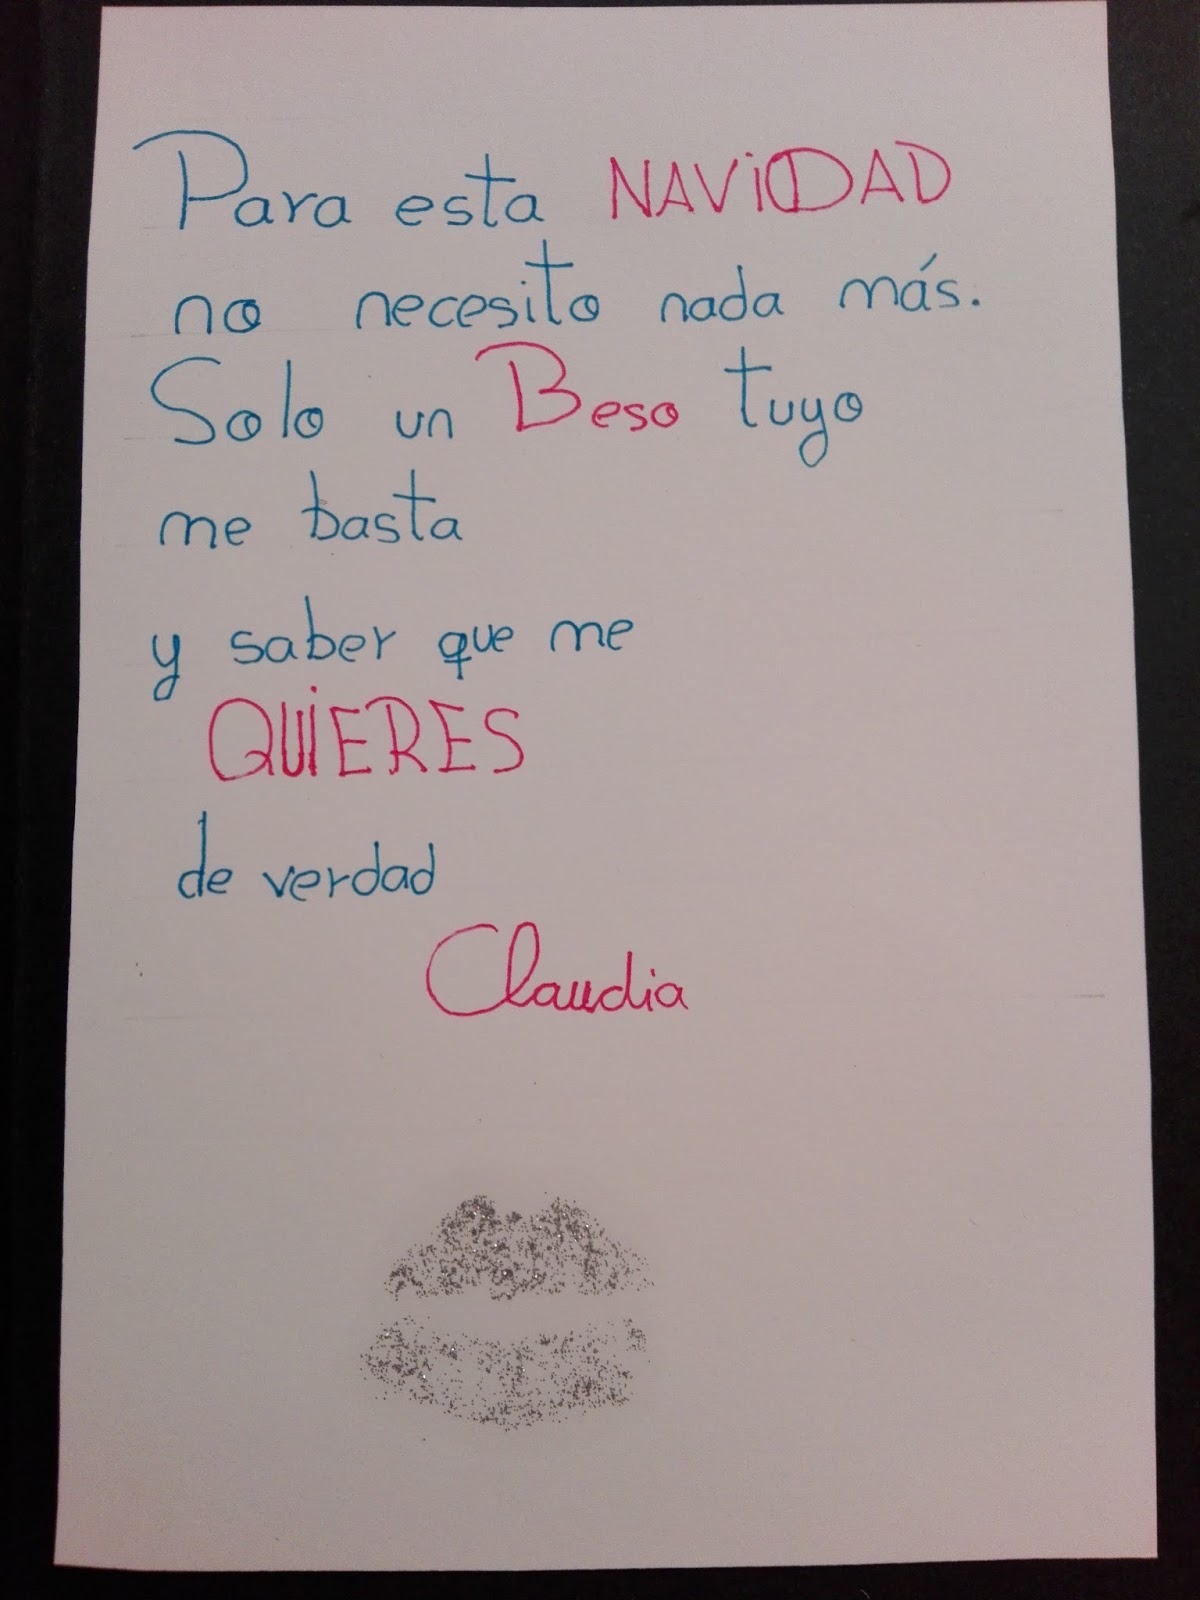 Para esta NAViDAD
no necesito nada más.
Solo un Beso tuyo
me basta
y saber que me
QUiERES
de verdad
Claudia